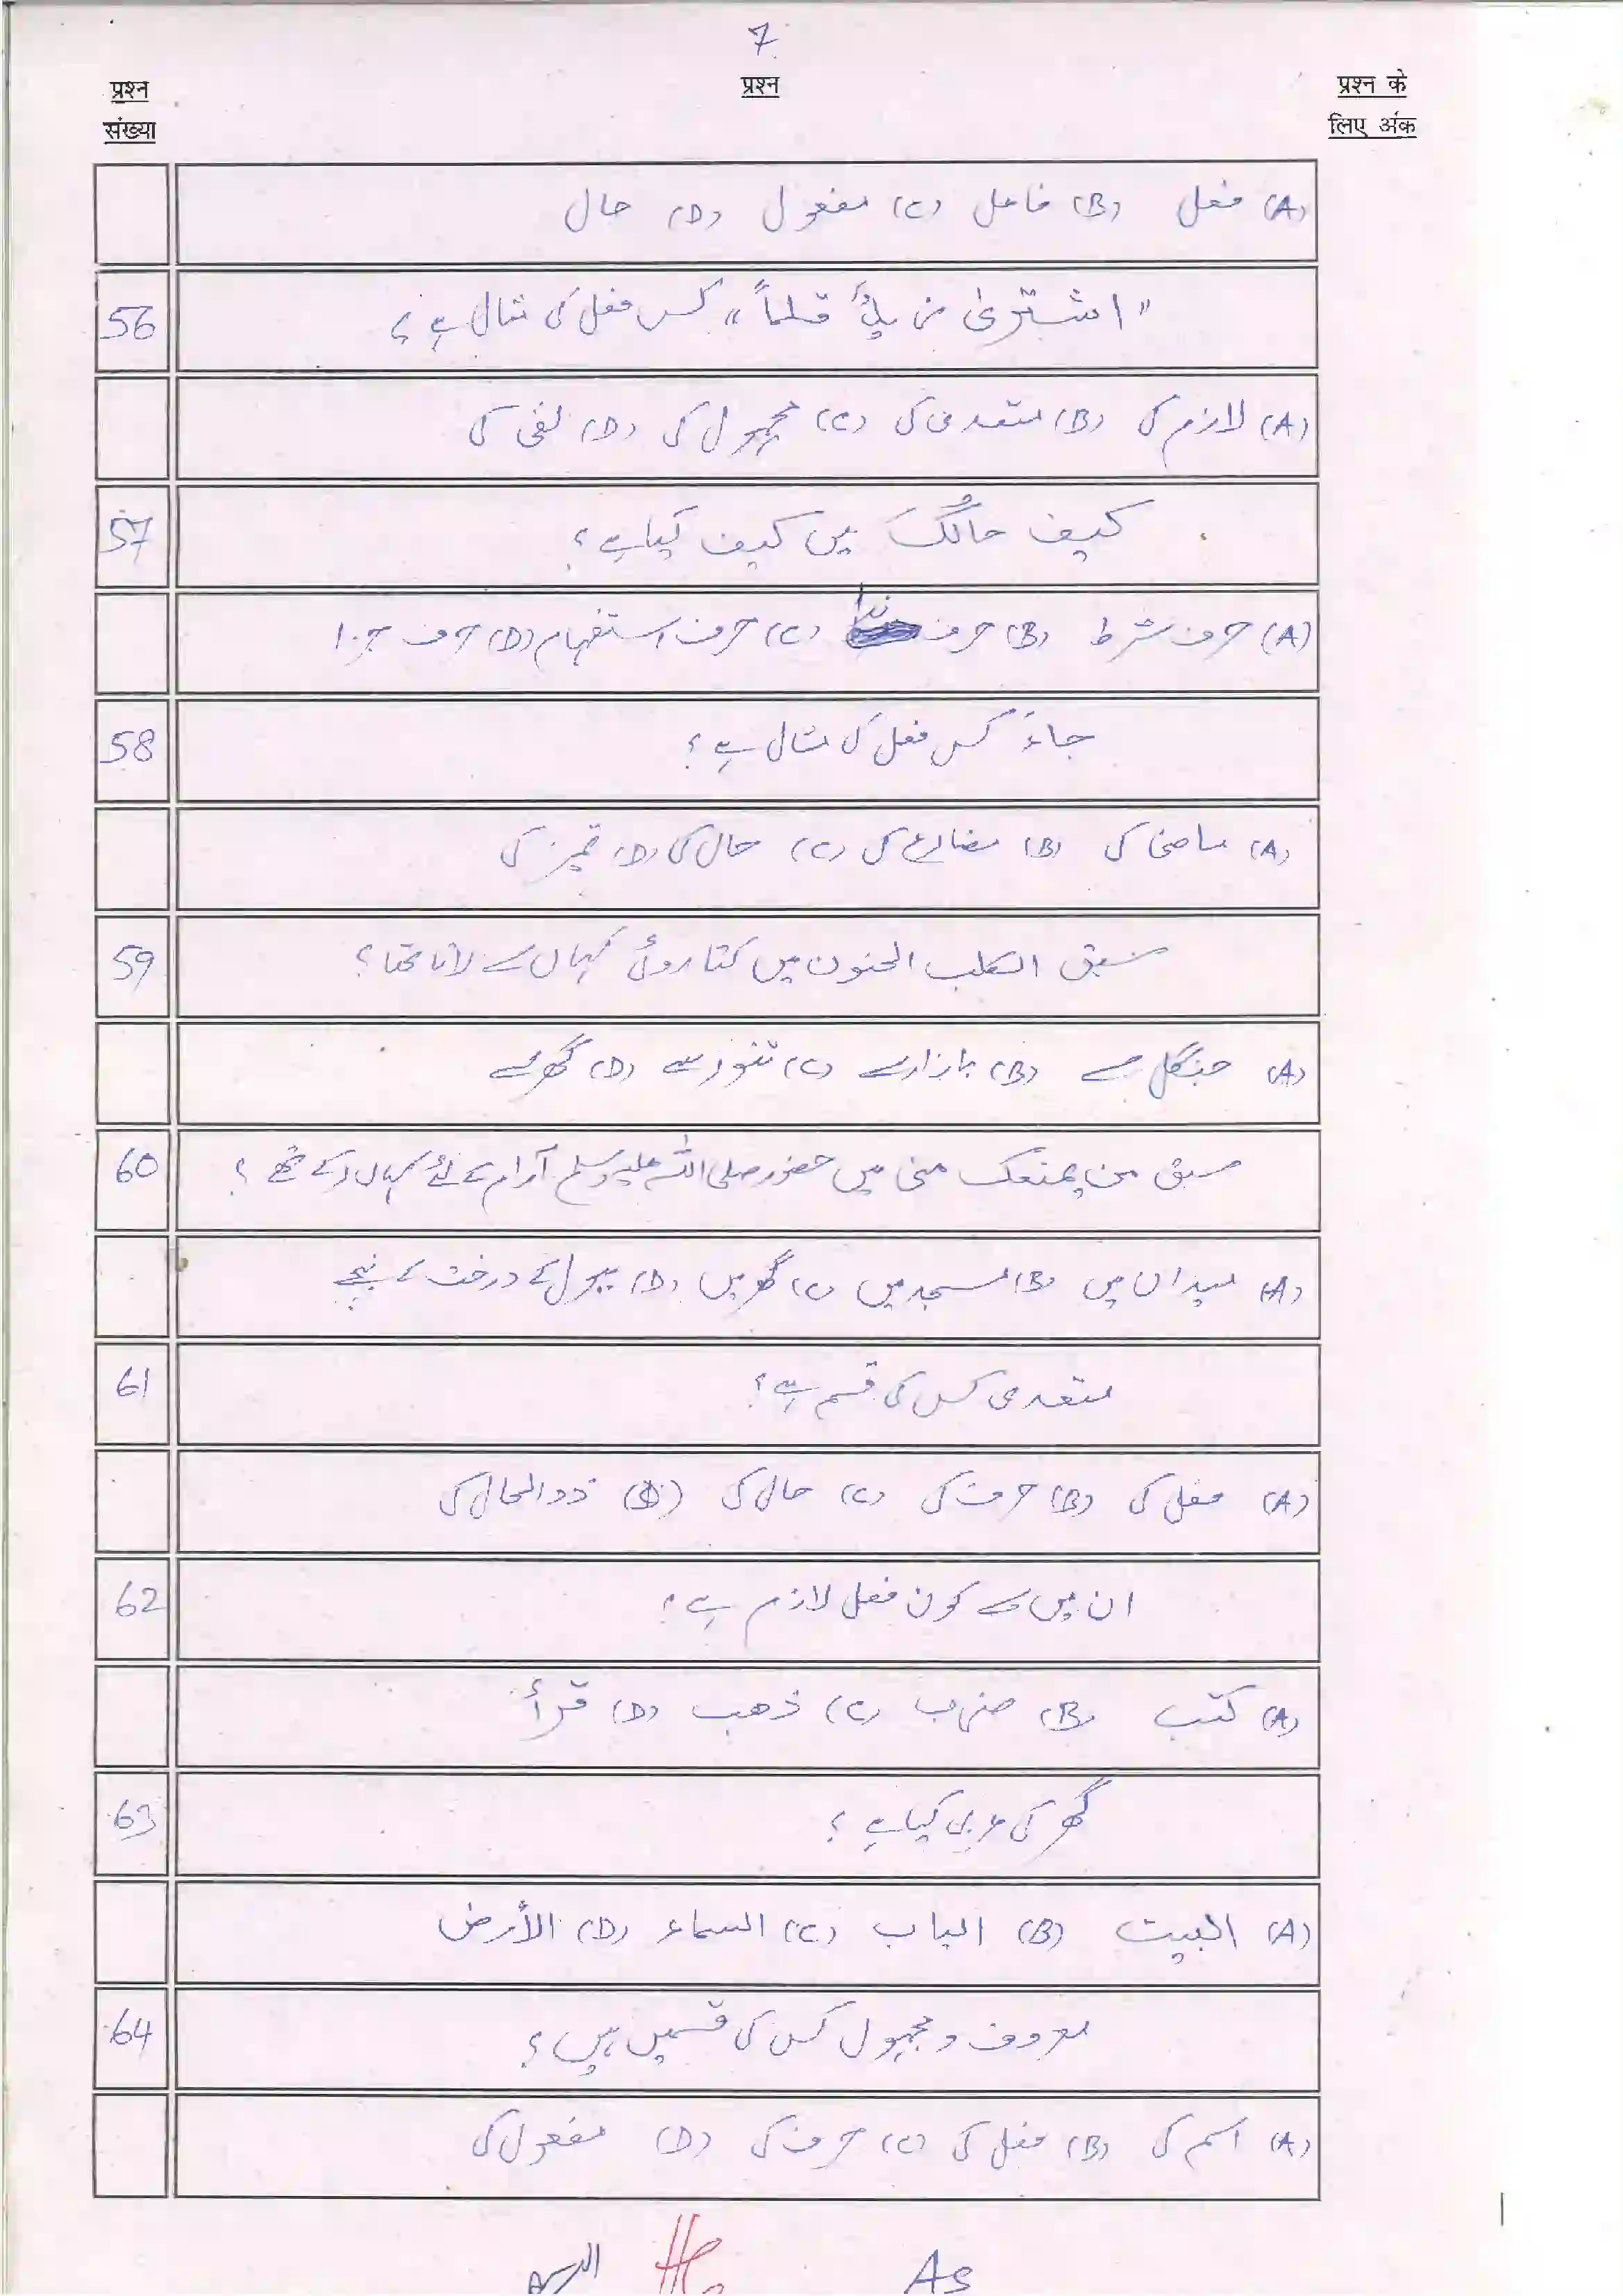 7
प्रश्न संख्या
प्रश्न
प्रश्न के लिए अंक
(A) فعل (B) فاعل (C) مفعول (D) حال
56 "اشتریٰ زیدٌ قلماً" کس فعل کی مثال ہے؟
(A) لازم کی (B) متعدی کی (C) مجہول کی (D) نفی کی
57 کیف حالُکَ میں کیف کیا ہے؟
(A) حرف شرط (B) حرف ندا (C) حرف استفہام (D) حرف جزا
58 جاءَ کس فعل کی مثال ہے؟
(A) ماضی کی (B) مضارع کی (C) حال کی (D) تمیز کی
59 سبق الکلب الجنون میں کتا روٹی کہاں سے لاتا تھا؟
(A) جنگل سے (B) بازار سے (C) تنور سے (D) گھر سے
60 سبق من یمنعک منی میں حضور صلی اللہ علیہ وسلم آرام کے لئے کہاں رکے تھے؟
(A) میدان میں (B) مسجد میں (C) گھر میں (D) ببول کے درخت کے نیچے
61 متعدی کس کی قسم ہے؟
(A) فعل کی (B) حرف کی (C) حال کی (D) ذوالحال کی
62 ان میں سے کون فعل لازم ہے؟
(A) کتب (B) ضرب (C) ذھب (D) قرأ
63 گھر کی عربی کیا ہے؟
(A) البیت (B) الباب (C) السماء (D) الأرض
64 معروف و مجہول کس کی قسمیں ہیں؟
(A) اسم کی (B) فعل کی (C) حرف کی (D) مفعول کی
As